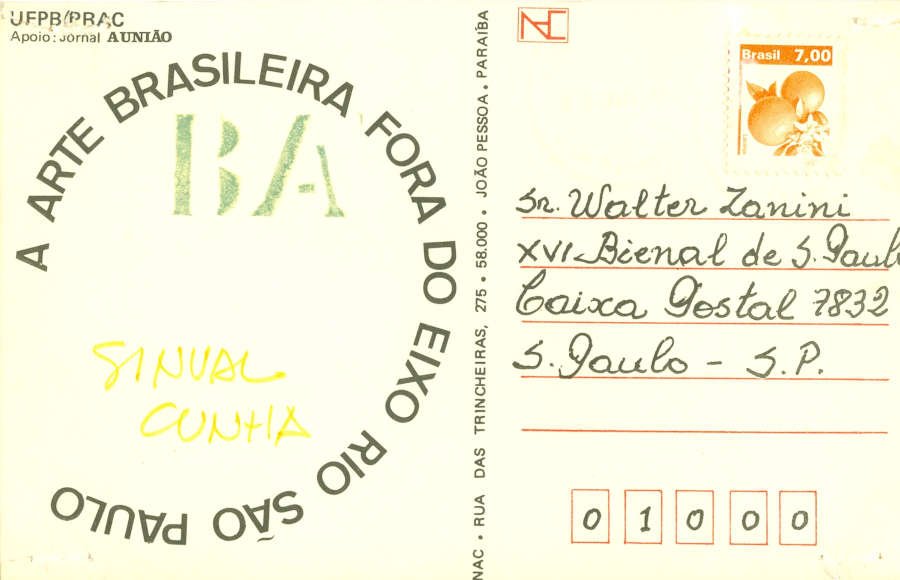 UFPB/PRAC
Apoio: Jornal A UNIÃO
A ARTE BRASILEIRA FORA DO EIXO RIO SÃO PAULO
BA
SINVAL
CUNHA
NAC • RUA DAS TRINCHEIRAS, 275 • 58.000 • JOÃO PESSOA • PARAIBA
NAC
Brasil 7,00
Sr. Walter Zanini
XVI Bienal de S. Paulo
Caixa Postal 7832
S. Paulo - S.P.
0 1 0 0 0